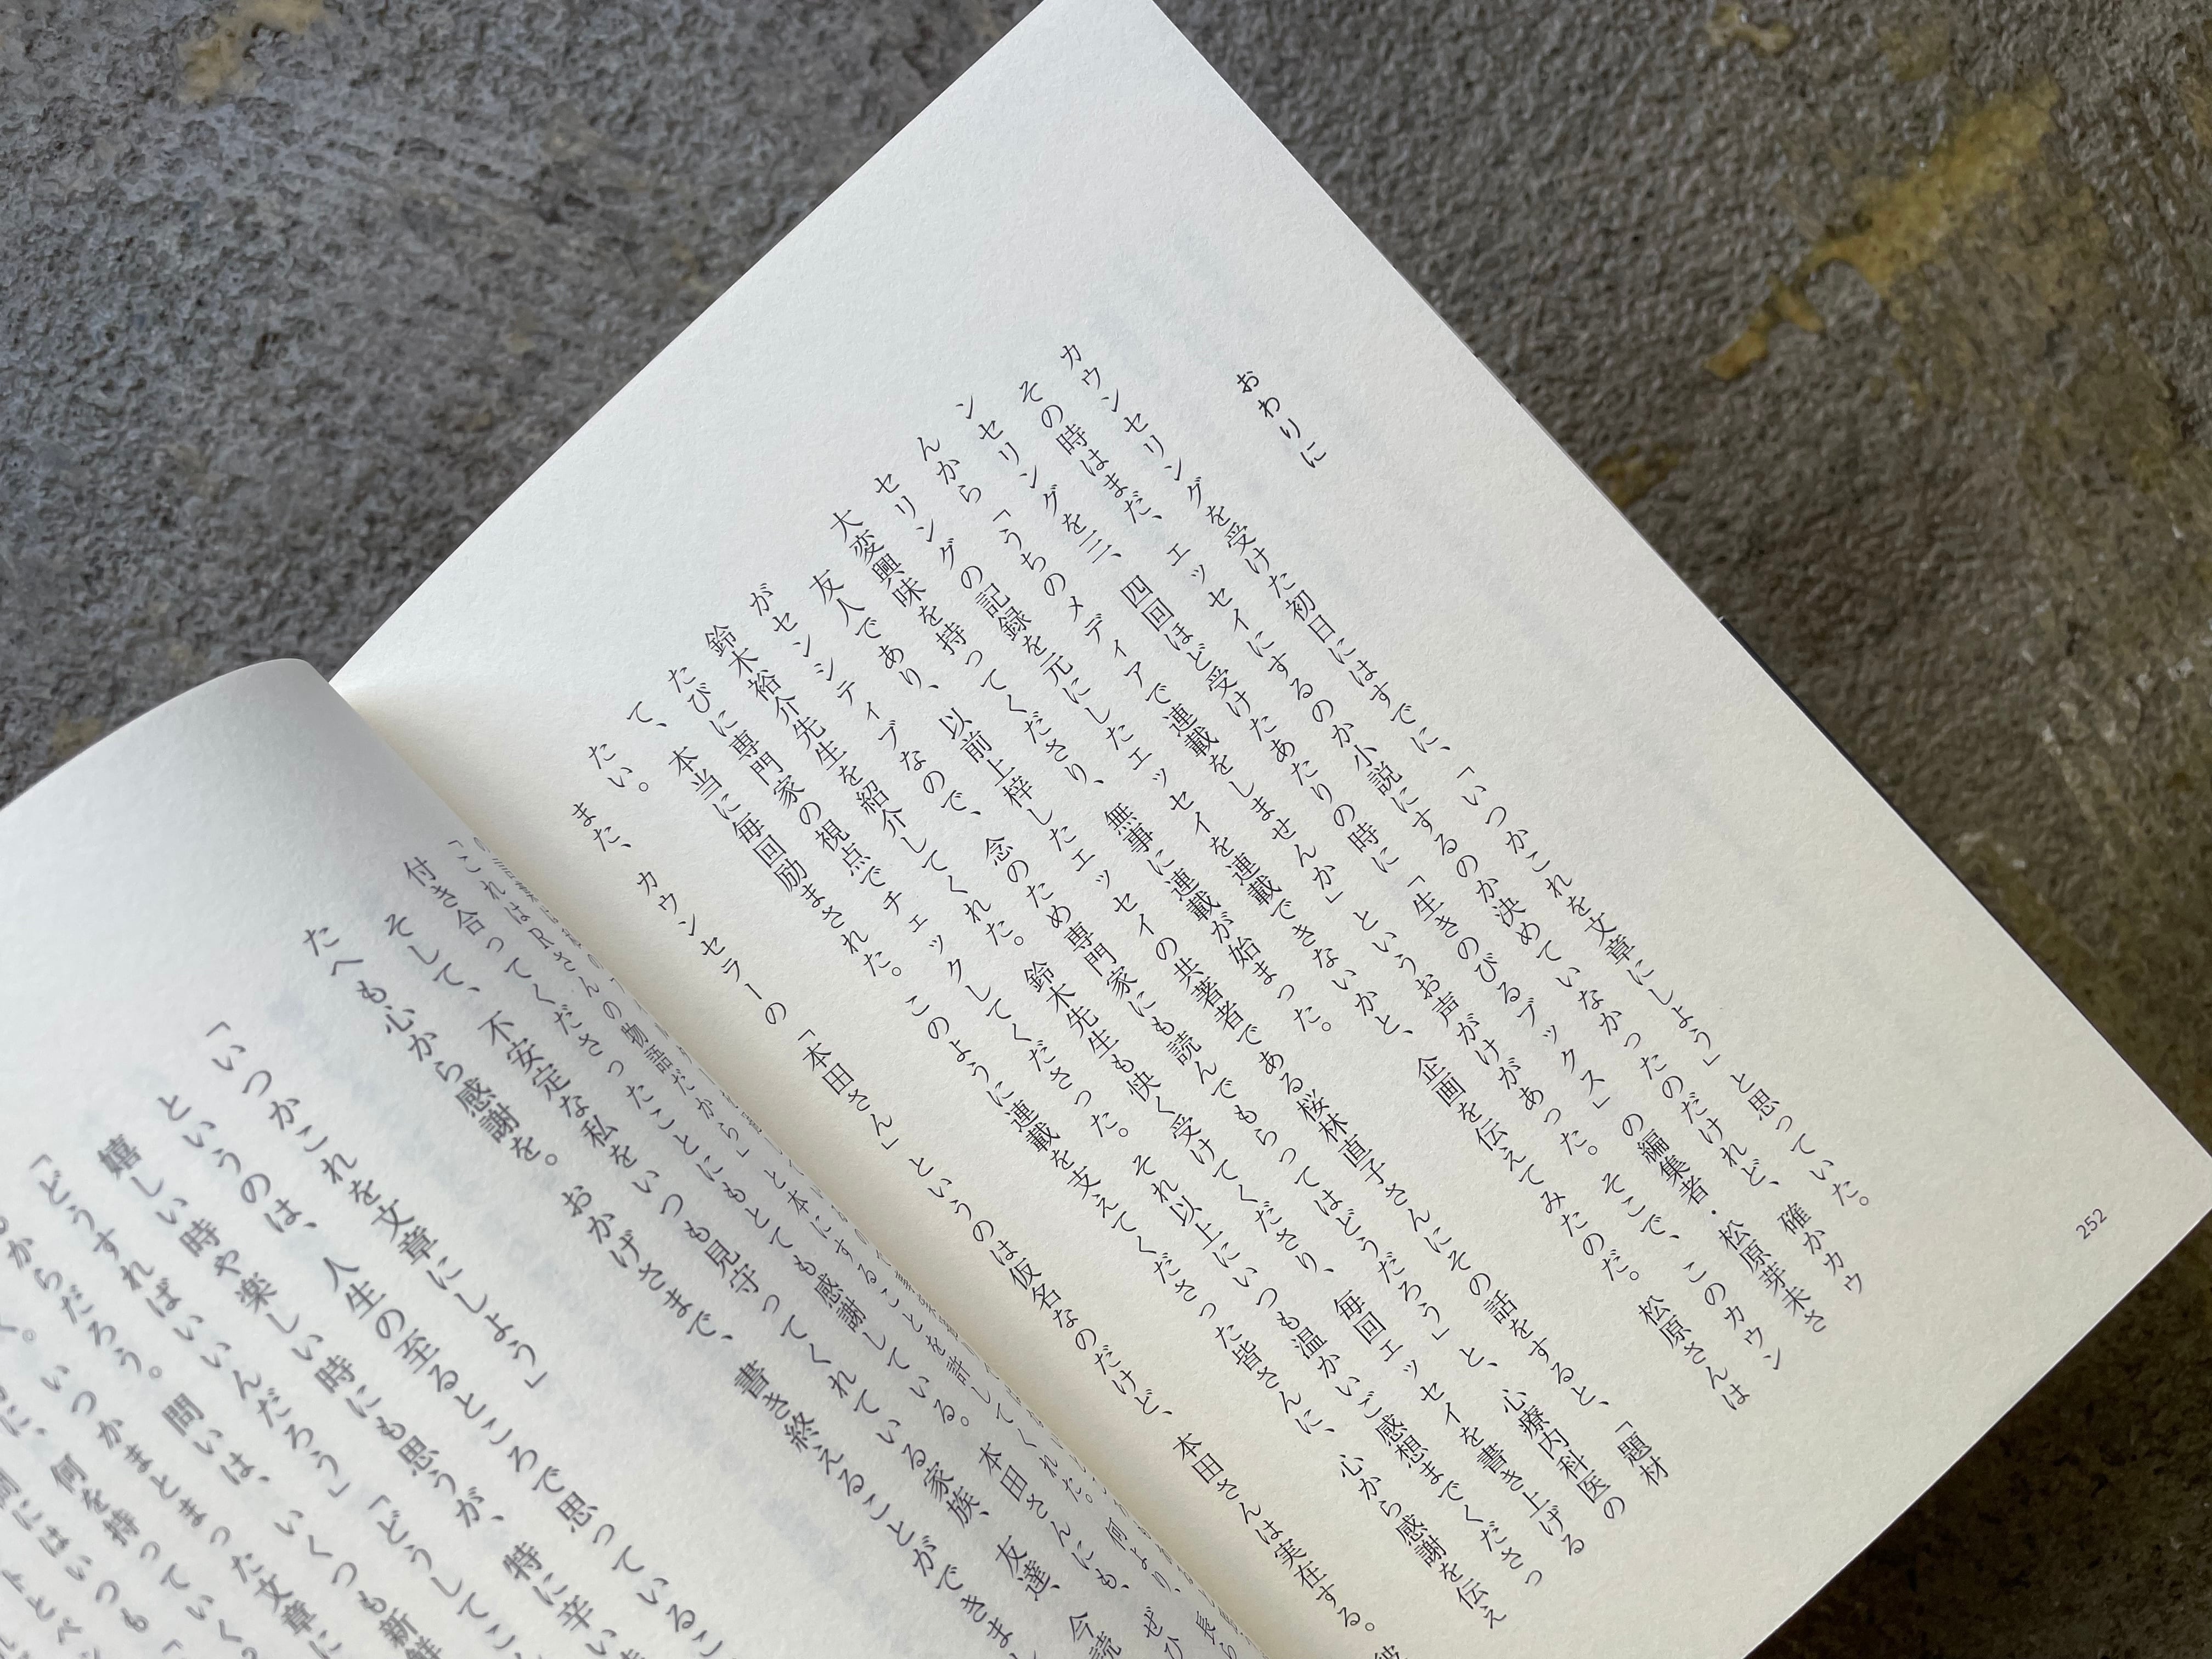 おわりに
カウンセリングを受けた初日にはすでに、「いつかこれを文章にしよう」と思っていた。
その時はまだ、エッセイにするのか小説にするのか決めていなかったのだけれど、確かカウ
ンセリングを三、四回ほど受けたあたりの時に「生きのびるブックス」の編集者・松原芽未さ
んから「うちのメディアで連載をしませんか」というお声がけがあった。そこで、このカウン
セリングの記録を元にしたエッセイを連載できないかと、企画を伝えてみたのだ。松原さんは
大変興味を持ってくださり、無事に連載が始まった。
友人であり、以前上梓したエッセイの共著者である桜林直子さんにその話をすると、「題材
がセンシティブなので、念のため専門家にも読んでもらってはどうだろう」と、心療内科医の
鈴木裕介先生を紹介してくれた。鈴木先生も快く受けてくださり、毎回エッセイを書き上げる
たびに専門家の視点でチェックしてくださった。それ以上にいつも温かいご感想までくださっ
て、本当に毎回励まされた。このように連載を支えてくださった皆さんに、心から感謝を伝え
たい。
また、カウンセラーの「本田さん」というのは仮名なのだけど、本田さんは実在する。彼
252
「これはRさんの物語だから」と本にすることを許してくれた。何より、長ら
付き合ってくださったことにもとても感謝している。本田さんにも、ぜひ
そして、不安定な私をいつも見守ってくれている家族、友達、今読
たへも心から感謝を。おかげさまで、書き終えることができまし
「いつかこれを文章にしよう」
というのは、人生の至るところで思っているこ
嬉しい時や楽しい時にも思うが、特に辛い
「どうすればいいんだろう」「どうしてこ
からだろう。問いは、いくつも新鮮
いつかまとまった文章に
何を持っていく